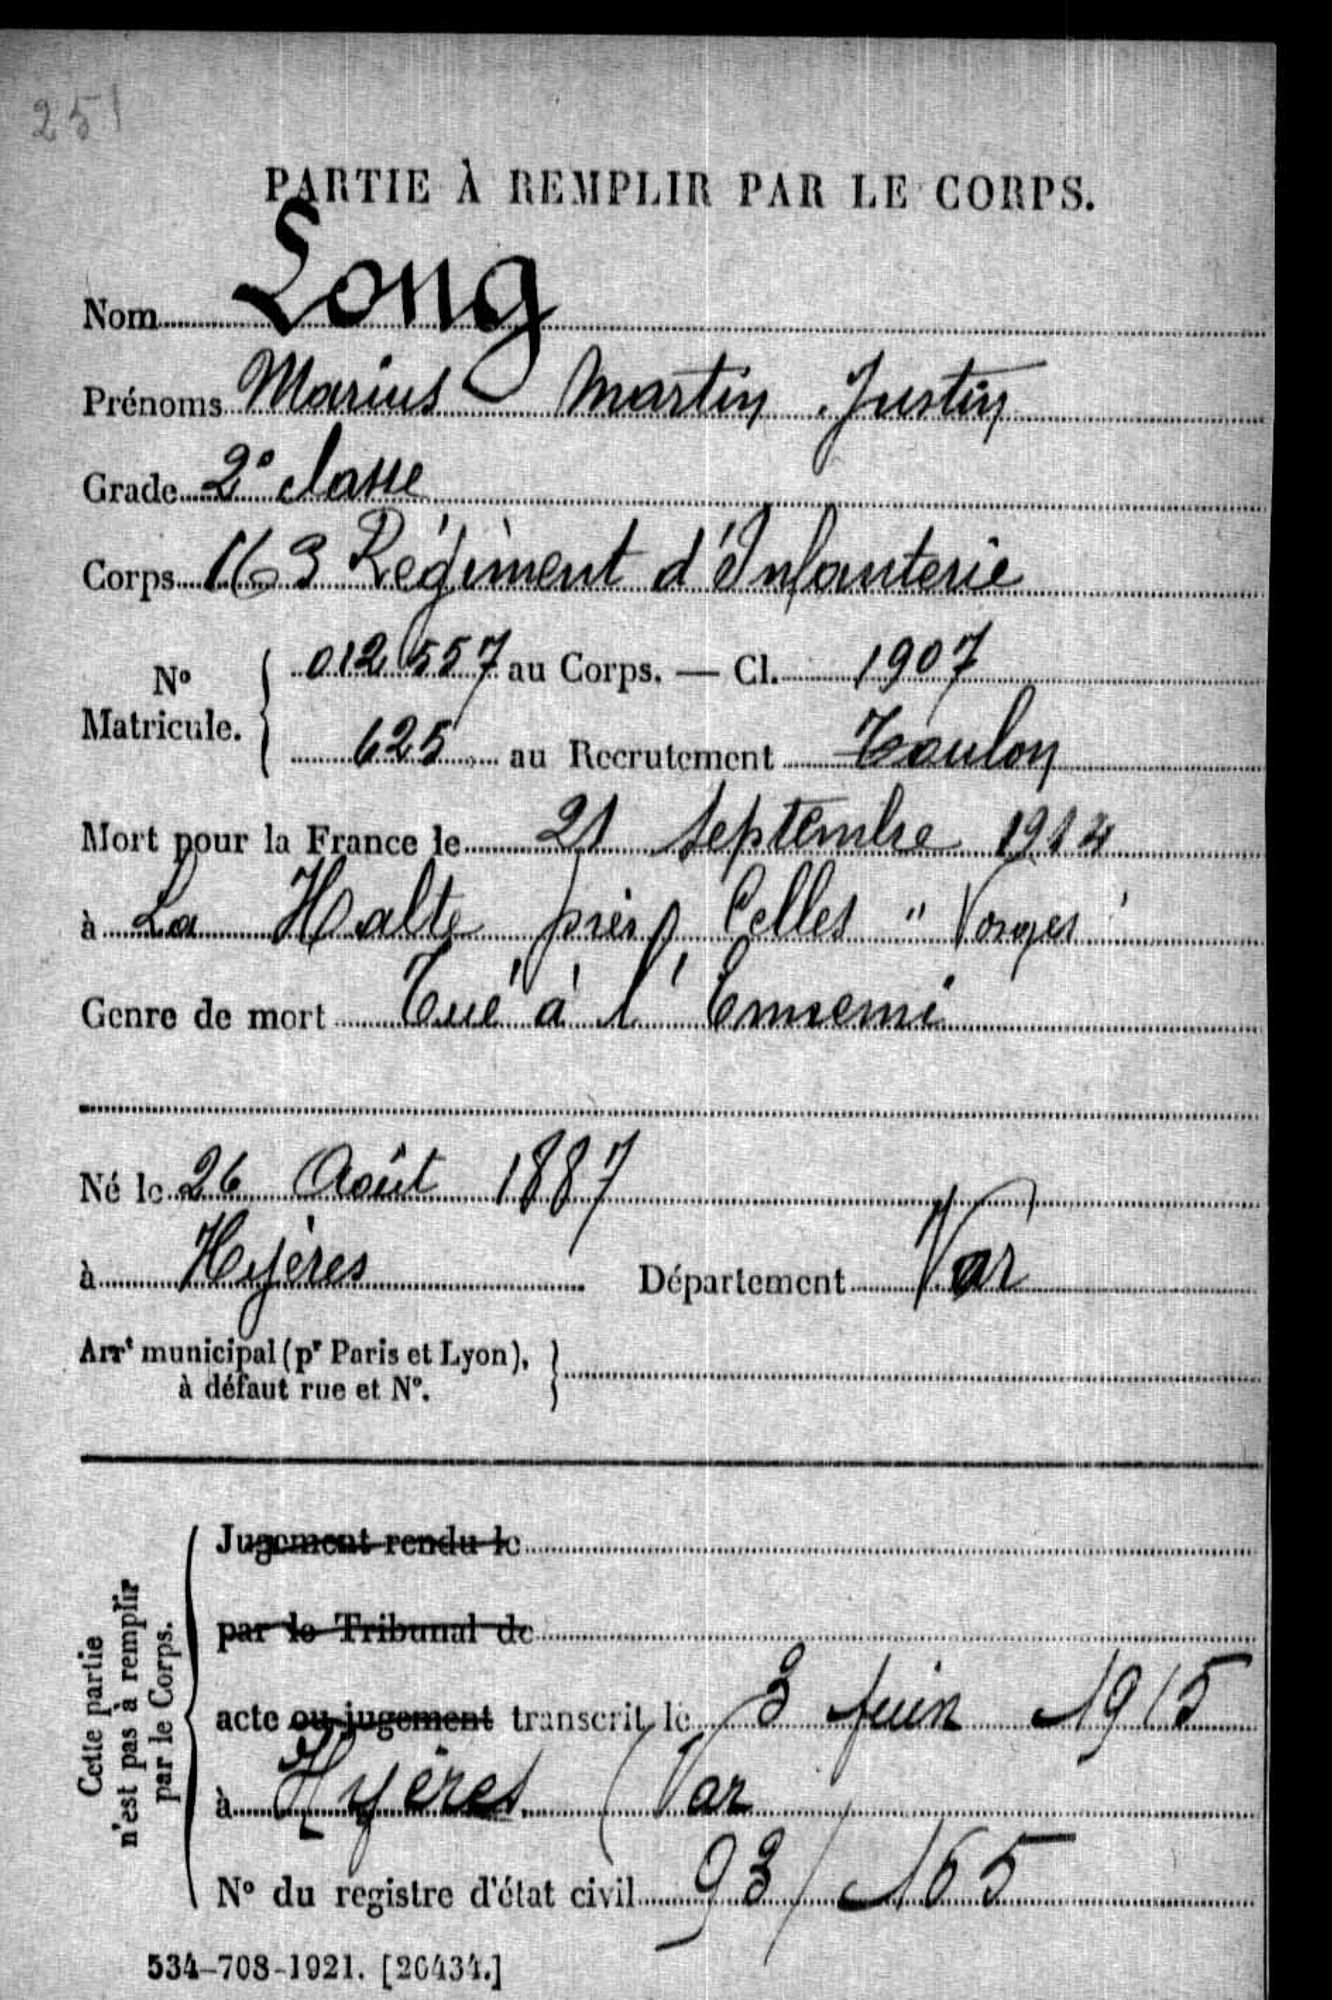 251
PARTIE À REMPLIR PAR LE CORPS.
Nom Long
Prénoms Marius Martin Justin
Grade 2e classe
Corps 163 Régiment d'Infanterie
No Matricule. { 012557 au Corps. — Cl. 1907
625 au Recrutement Toulon
Mort pour la France le 21 Septembre 1914
à La Halte près Celles "Vosges"
Genre de mort Tué à l'Ennemi
Né le 26 Août 1887
à Hyères Département Var
Arrt municipal (pr Paris et Lyon), }
à défaut rue et No.
Cette partie
n'est pas à remplir
par le Corps.
Jugement rendu le
par le Tribunal de
acte ou jugement transcrit le 3 Juin 1915
à Hyères (Var
No du registre d'état civil 93/165
534-708-1921. [26434.]